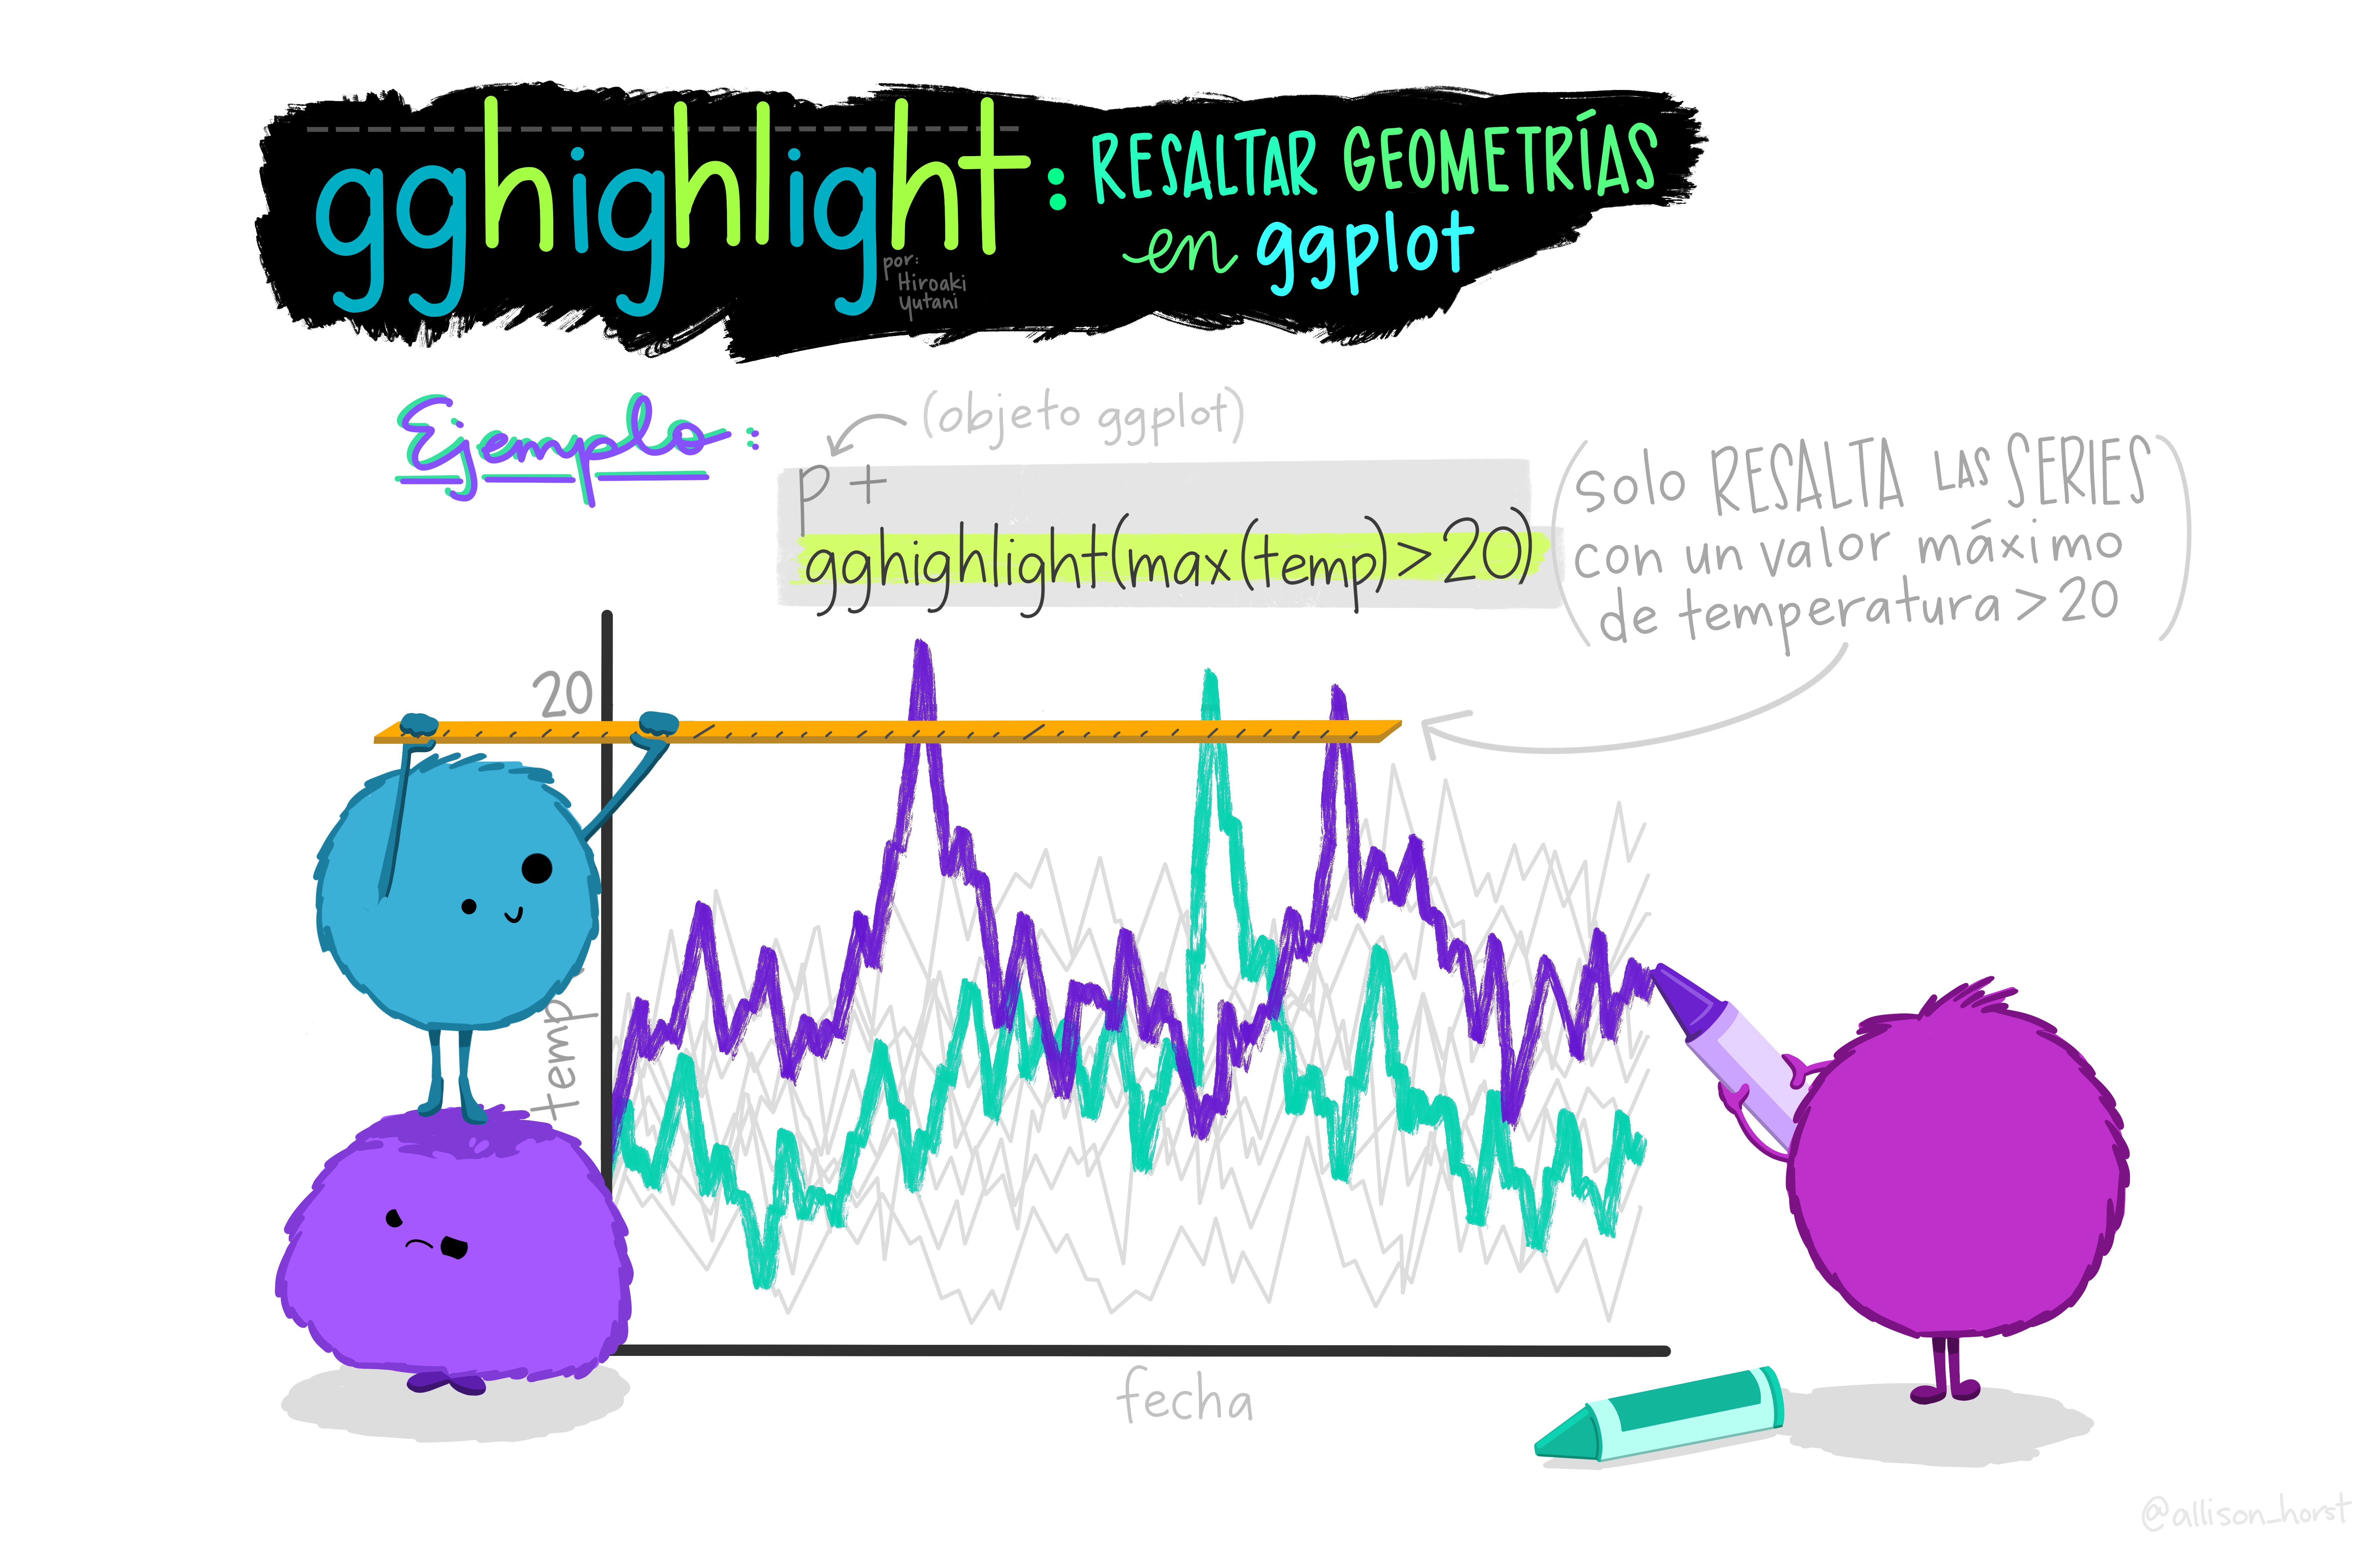 gghighlight: RESALTAR GEOMETRÍAS
en ggplot
por:
Hiroaki
Yutani
Ejemplo:
(objeto ggplot)
p +
gghighlight(max(temp)>20)
(solo RESALTA LAS SERIES
con un valor máximo
de temperatura > 20)
20
temp
fecha
@allison_horst